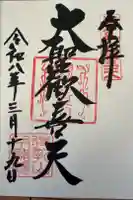 奉拝
大聖歓喜天
令和八年三月十九日